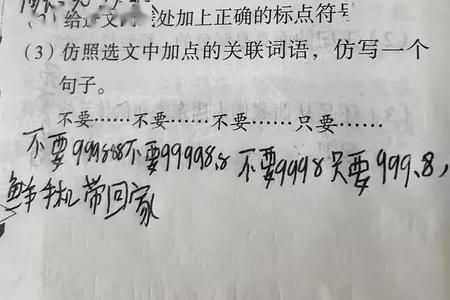 (2) 给处加上正确的标点符号
(3) 仿照选文中加点的关联词语，仿写一个
句子。
不要……不要……不要……只要……
不要999888不要99998.8 不要9998只要999.8,
鲜手机带回家